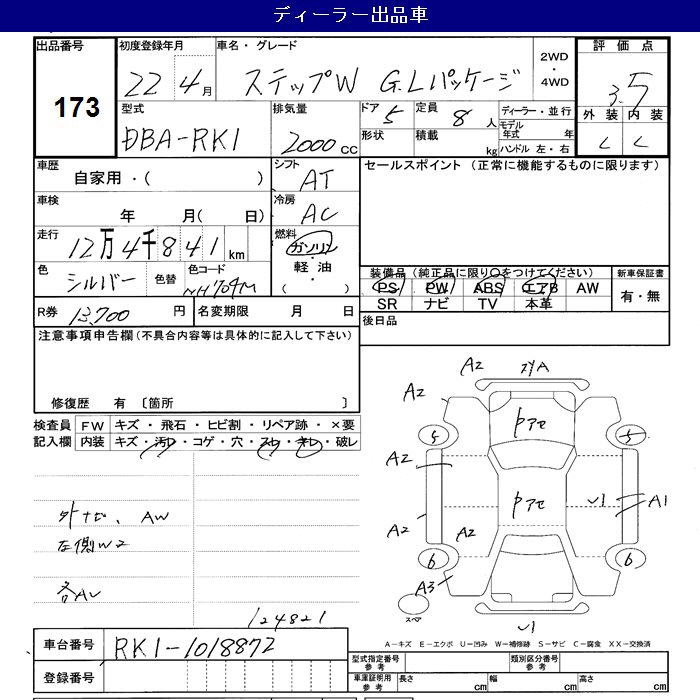 ディーラー出品車
出品番号 173
初度登録年月 22 4月
車名・グレード ステップW G.Lパッケージ
2WD・4WD
評価点 3.5
外装 C 内装 C
型式 DBA-RK1
排気量 2000cc
ドア 5
形状
定員 8人
積載 kg
ディーラー・並行
モデル年式 年
ハンドル 左・右
車歴 自家用・( )
シフト AT
車検 年 月( 日)
冷房 AC
走行 12万4千841km
燃料 ガソリン・軽油・( )
色 シルバー
色替
色コード NH704M
R券 13,700円
名変期限 月 日
セールスポイント (正常に機能するものに限ります)
装備品 (純正品に限り○をつけてください)
PS PW ABS エアB AW
SR ナビ TV 本革
新車保証書
有・無
後日品
注意事項申告欄(不具合内容等は具体的に記入して下さい)
修復歴 有 〔箇所 〕
検査員記入欄
FW キズ・飛石・ヒビ割・リペア跡・×要
内装 キズ・汚レ・コゲ・穴・スレ・キレ・破レ
外ナビ、AW
左側W2
各AU
124821
A2 スリA
A2
ドアセ
5 5
A2
ドアセ
U1 A1
A2 A2
6 6
A3
スペア
U1
A−キズ E−エクボ U−凹み W−補修跡 S−サビ C−腐食 XX−交換済
車台番号 RK1-1018872
登録番号
型式指定番号 参考
類別区分番号 参考
車庫証明用 参考 長さ cm 幅 cm 高さ cm